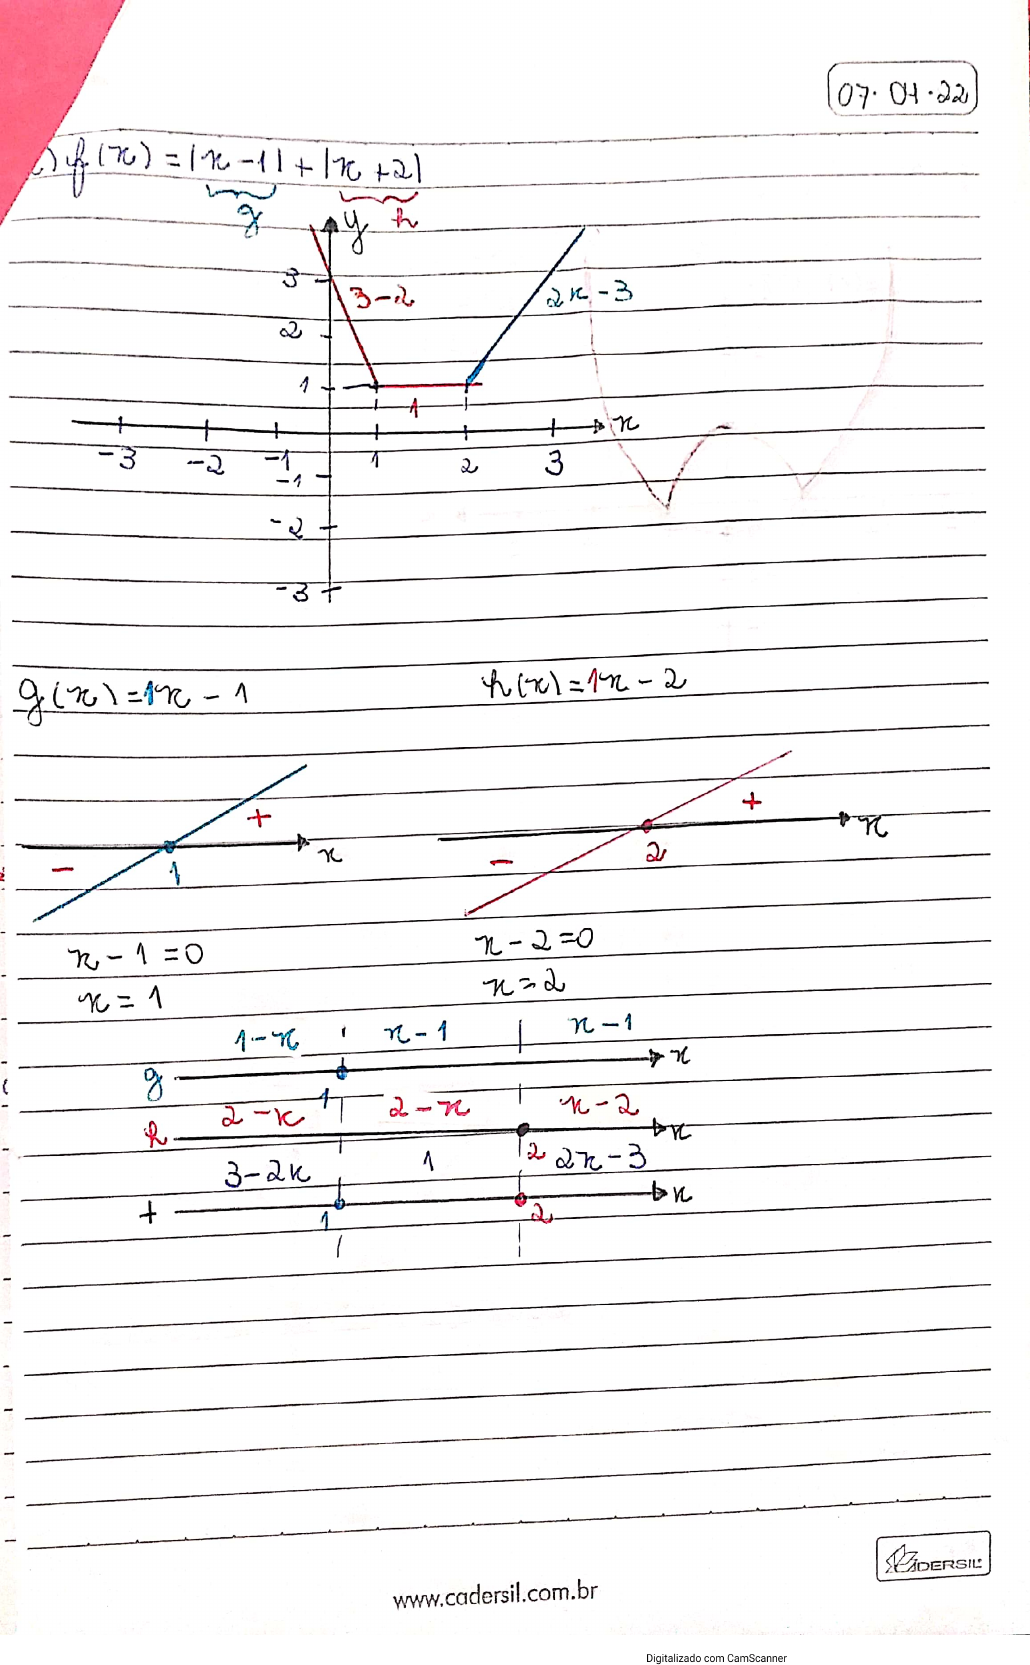 07.04.22
) f(x) = |x - 1| + |x + 2|
g h
y
3
3 - 2
2x - 3
2
1
1
x
-3 -2 -1 1 2 3
-1
-2
-3
g(x) = 1x - 1 h(x) = 1x - 2
+ +
- 1 x - 2 x
x - 1 = 0 x - 2 = 0
x = 1 x = 2
1 - x x - 1 x - 1
g x
1
2 - x 2 - x x - 2
h x
2
3 - 2x 1 2x - 3
+ x
1 2
CADERSIL
www.cadersil.com.br
Digitalizado com CamScanner